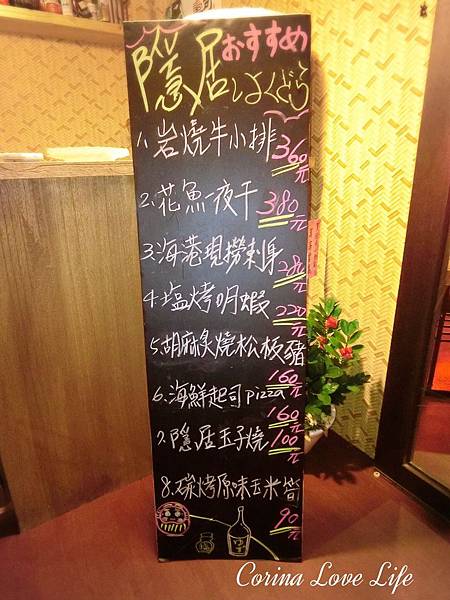 隱居おすすめ
しょくどう
1.岩燒牛小排360元
2.花魚一夜干380元
3.海港現撈刺身280元
4.塩烤明蝦220元
5.胡麻炙燒松板豬160元
6.海鮮起司pizza160元
7.隱居玉子燒100元
8.碳烤原味玉米筍90元
Corina Love Life